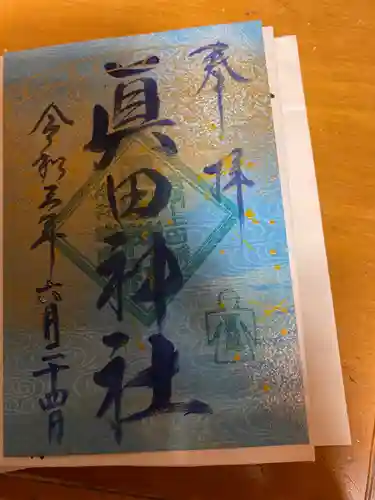 奉拝
眞田神社
令和三年 六月二十四日